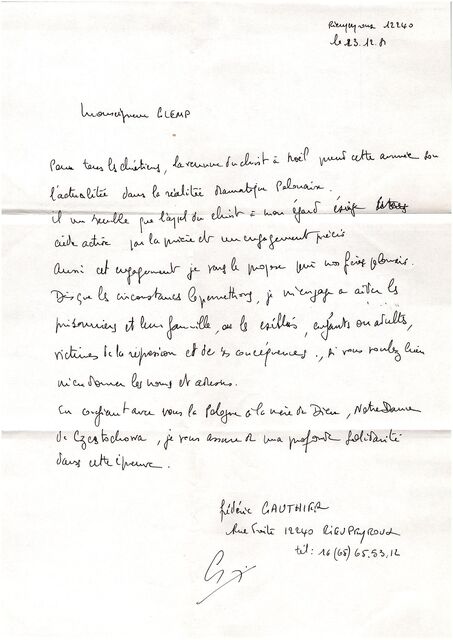 Rieupeyroux 12240
le 23.12.81
Monseigneur GLEMP
Pour tous les chrétiens, la venue du christ à Noël prend cette année son
l'actualité dans la réalité dramatique Polonaise.
il me semble que l'appel du christ à mon égard exige
aide active par la prière et un engagement précis
Aussi cet engagement je vous le propose pour nos frères polonais.
Dès que les circonstances le permettrons, je m'engage a aider les
prisonniers et leur famille, ou les exilés, enfants ou adultes,
victimes de la répression et de ses conséquences, si vous voulez bien
m'en donner les noms et adresses.
En confiant avec vous la Pologne à la mère de Dieu, Notre Dame
de Czestochowa, je vous assure de ma profonde solidarité
dans cette épreuve.
frédéric GAUTHIER
Rue Droite 12240 RIEUPEYROUX
tél: 16 (65) 65.53.12